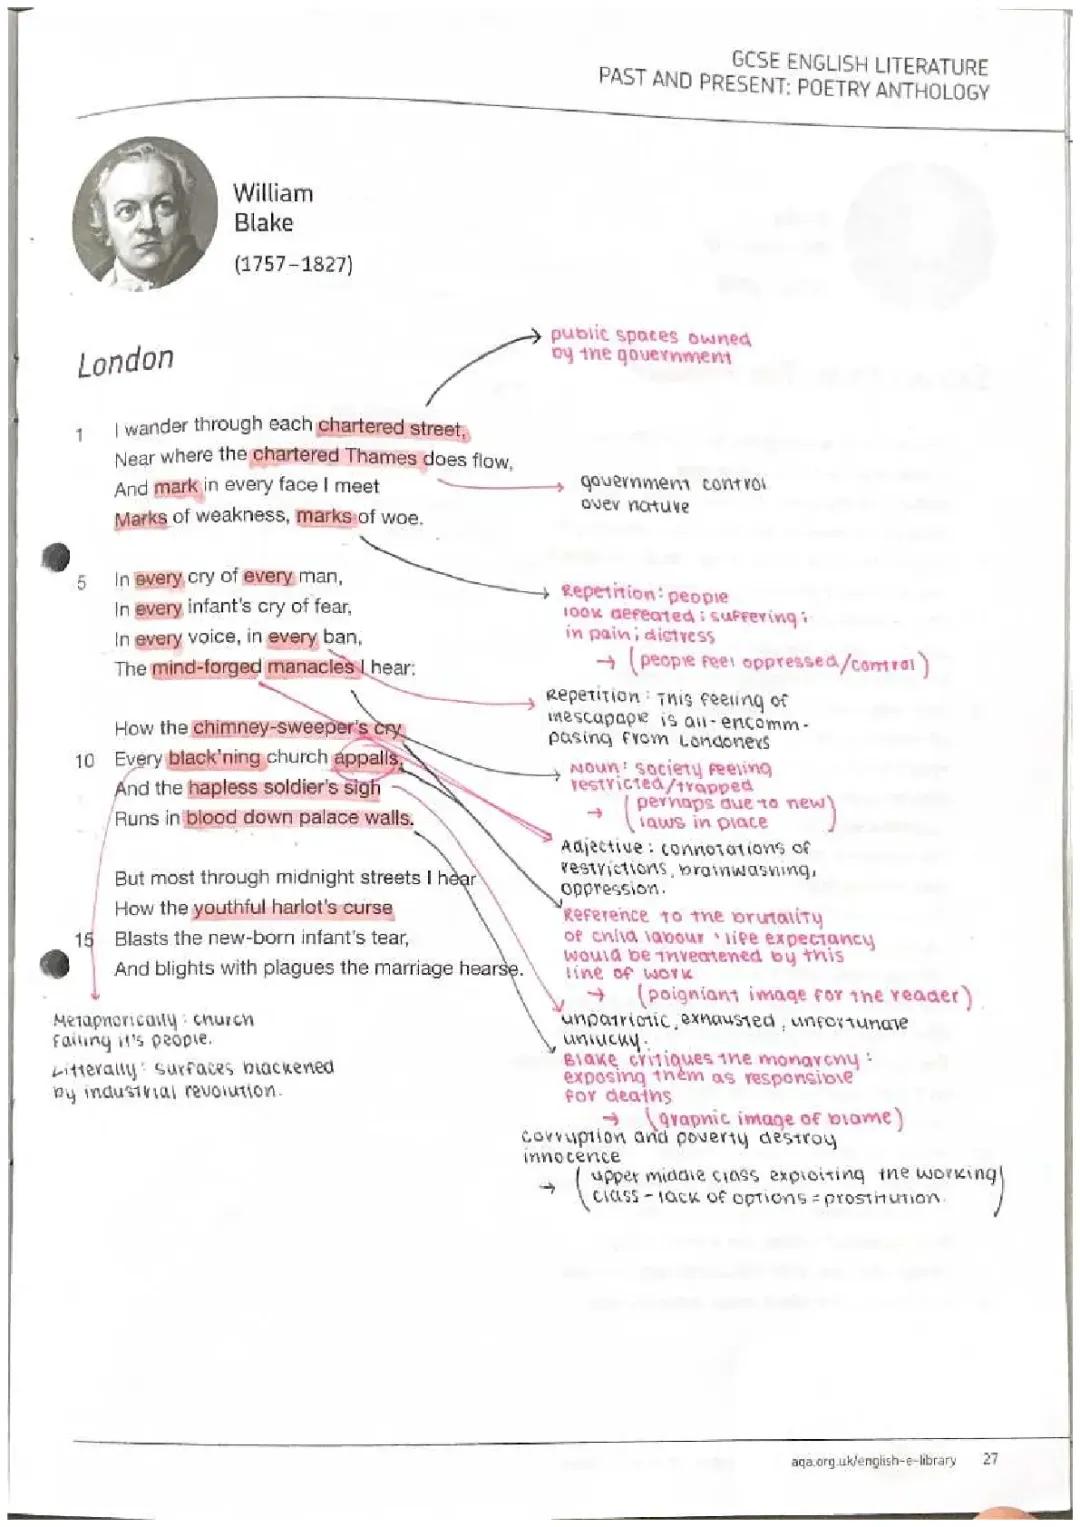 GCSE ENGLISH LITERATURE
PAST AND PRESENT: POETRY ANTHOLOGY
William
Blake
(1757–1827)
London
public spaces owned
by the government
1 I wander through each chartered street,
Near where the chartered Thames does flow,
And mark in every face I meet
Marks of weakness, marks of woe.
government control
over nature
5 In every cry of every man,
In every infant's cry of fear,
In every voice, in every ban,
The mind-forged manacles I hear:
Repetition: people
look defeated; suffering;
in pain; distress
→ (people feel oppressed/control)
Repetition: This feeling of
inescapable is all-encomm-
pasing from Londoners
How the chimney-sweeper's cry
10 Every black'ning church appalls,
And the hapless soldier's sigh
Runs in blood down palace walls.
Noun: society feeling
restricted/trapped
→ (perhaps due to new
laws in place)
Adjective: connotations of
restrictions, brainwashing,
oppression.
But most through midnight streets I hear
How the youthful harlot's curse
15 Blasts the new-born infant's tear,
And blights with plagues the marriage hearse.
Reference to the brutality
of child labour ' life expectancy
would be threatened by this
line of work
→ (poigniant image for the reader)
unpatriotic, exhausted, unfortunate
unlucky.
Blake critiques the monarchy:
exposing them as responsible
for deaths
→ (graphic image of blame)
Metaphorically: church
failing it's people.
Litterally: surfaces blackened
by industrial revolution.
corruption and poverty destroy
innocence
→ (upper middle class exploiting the working
class - lack of options = prostitution)
aqa.org.uk/english-e-library 27